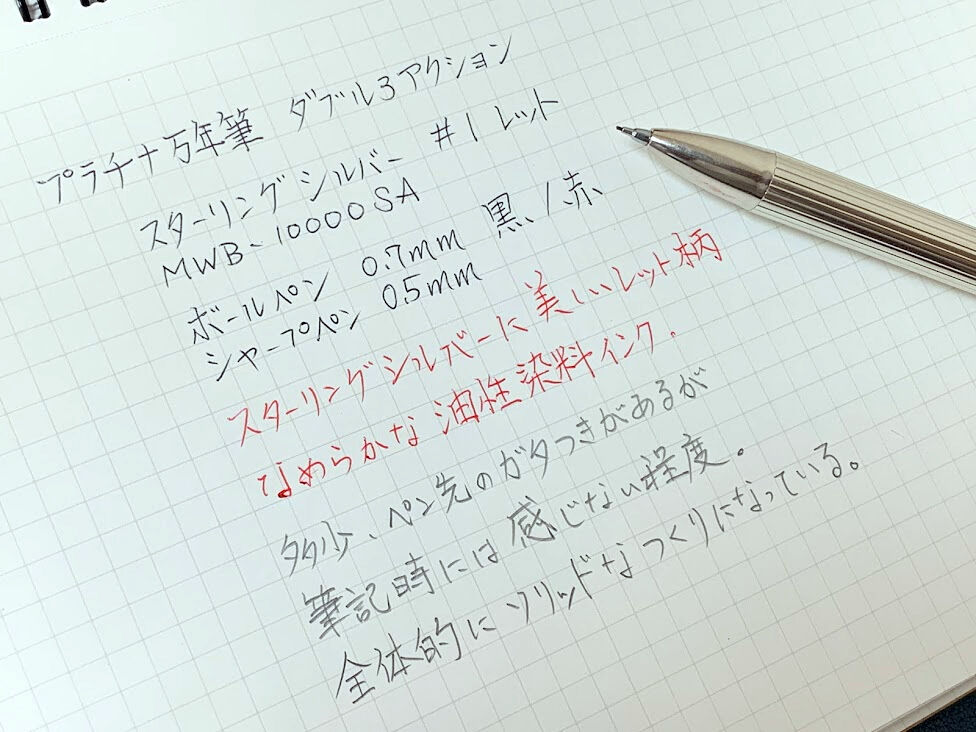 プラチナ万年筆 ダブル3アクション
スターリングシルバー #1 レット
MWB-10000SA
ボールペン 0.7mm 黒/赤
シャープペン 0.5mm
スターリングシルバーに美しいレット柄
なめらかな油性染料インク.
多少、ペン先のガタつきがあるが
筆記時には感じない程度。
全体的にソリッドなつくりになっている。